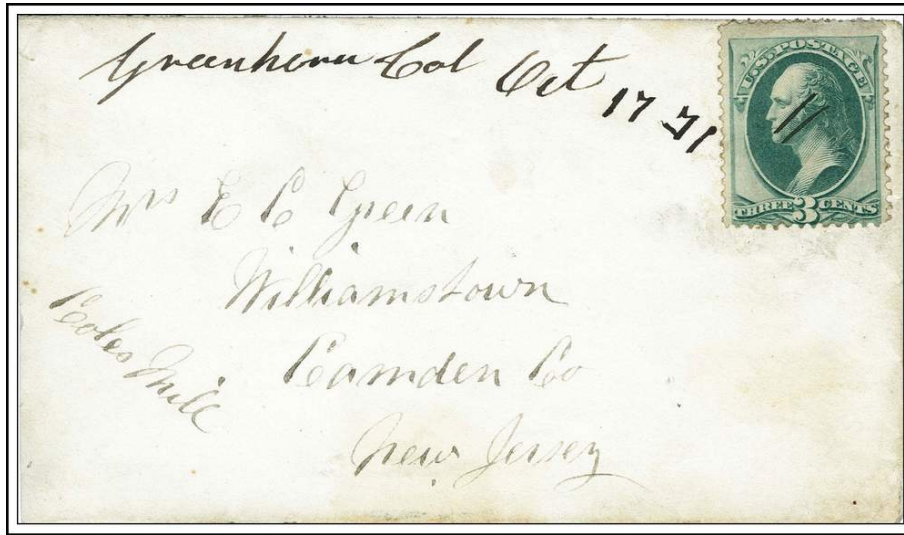 Greenhorn Col Oct 17 71
U.S. POSTAGE
THREE 3 CENTS
Mrs E C Green
Williamstown
Camden Co
New Jersey
Coles Mill